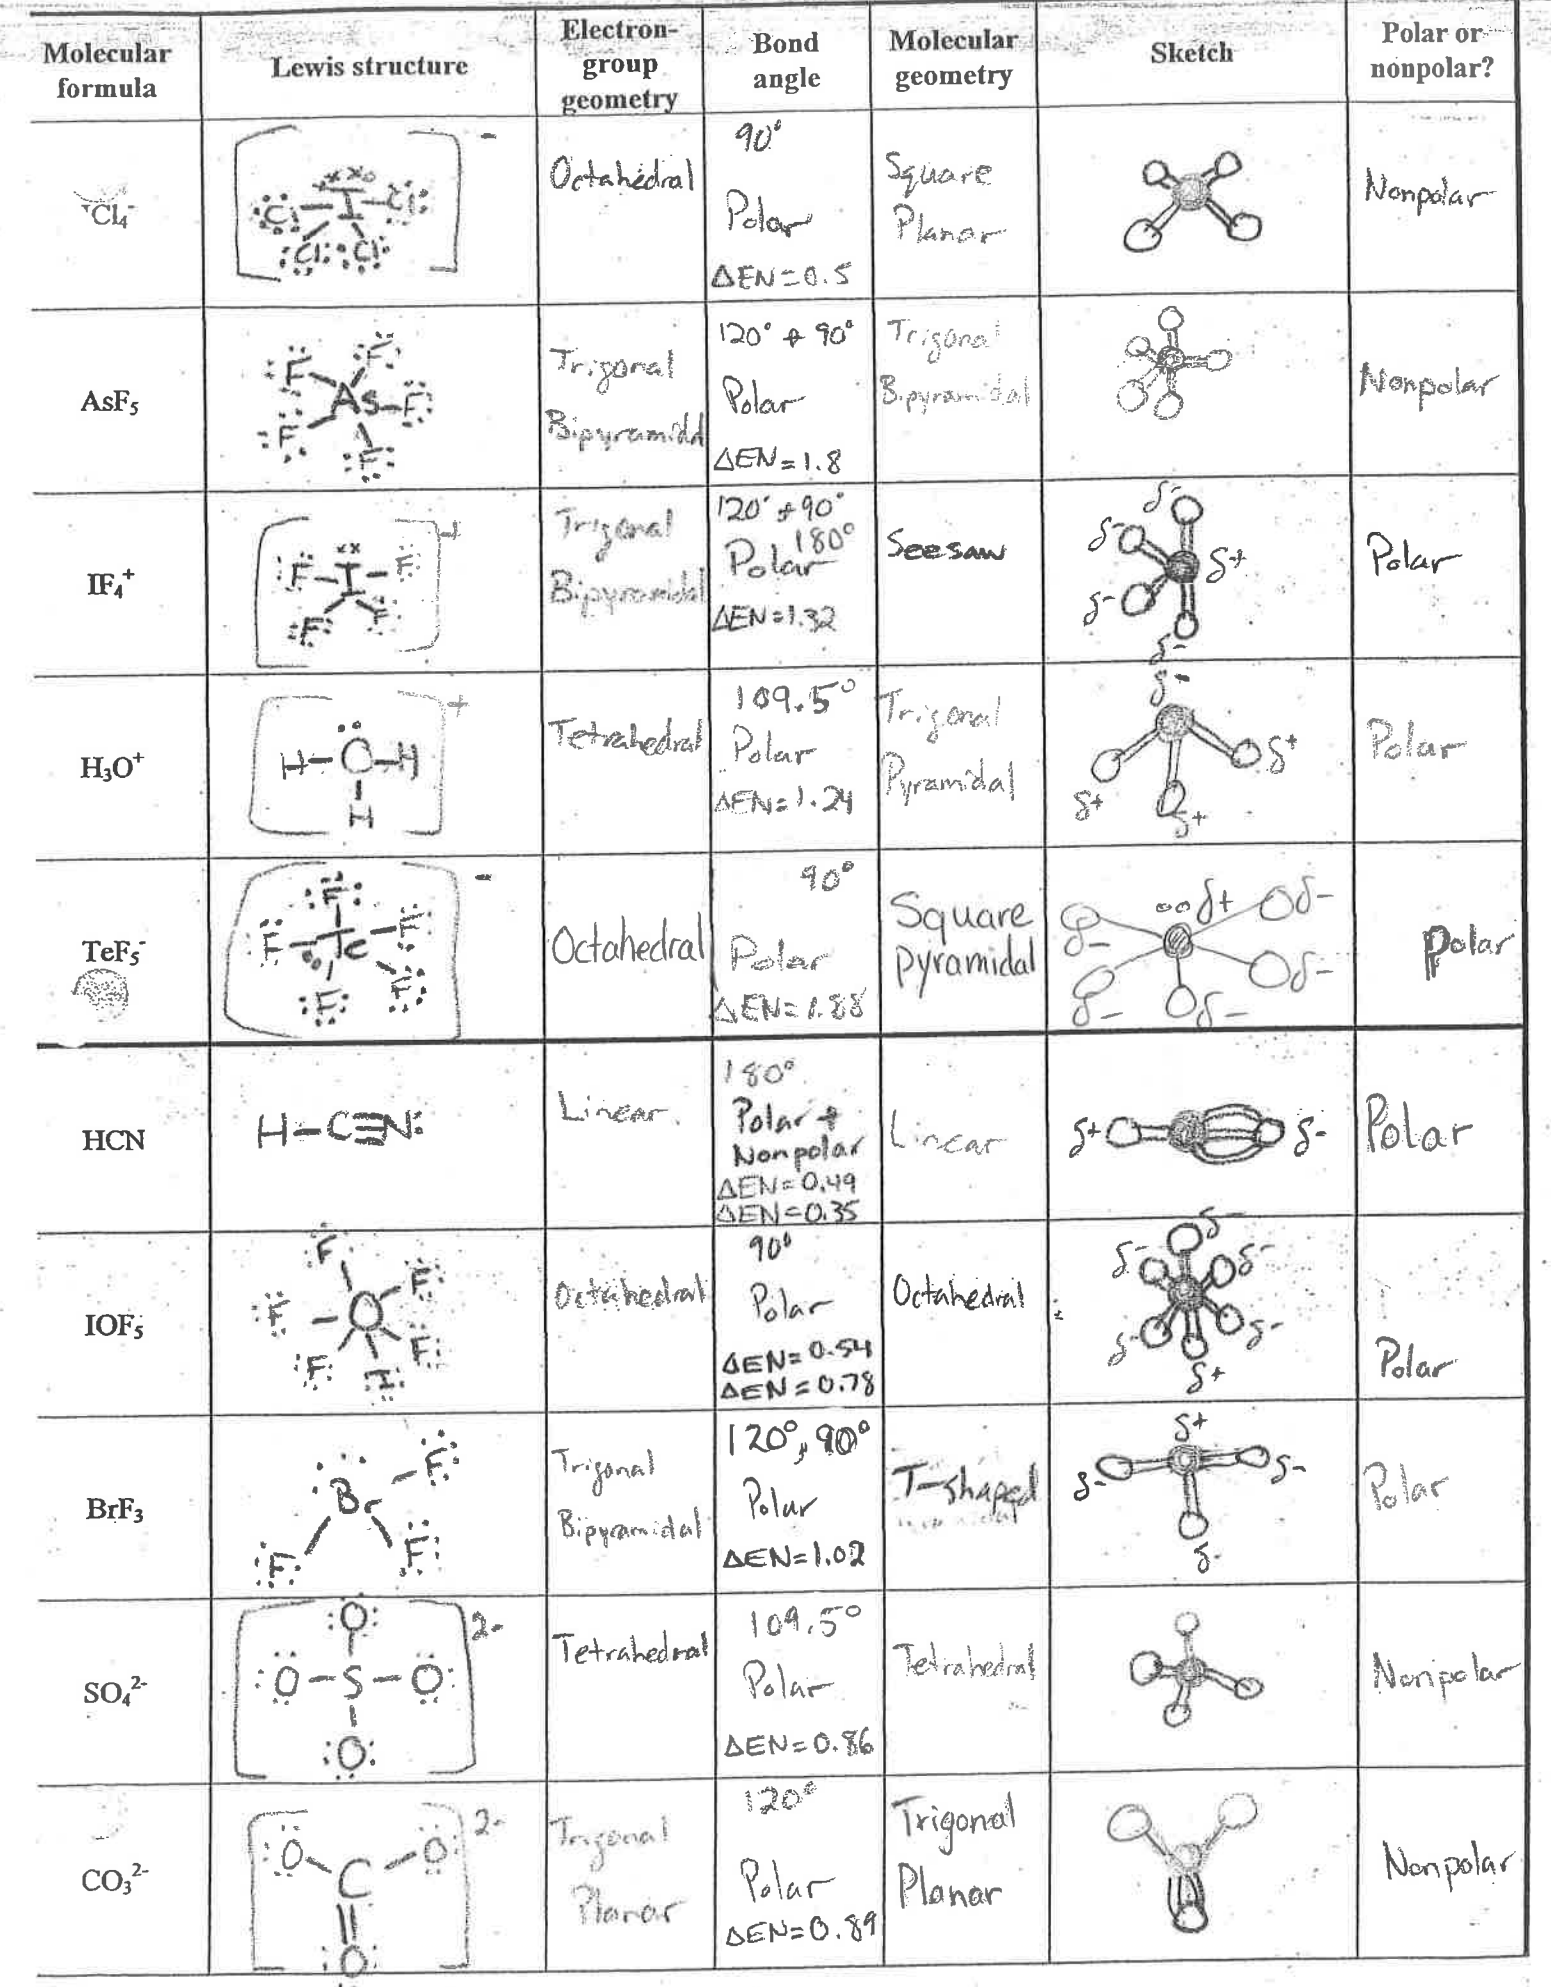 Molecular formula
Lewis structure
Electron-group geometry
Bond angle
Molecular geometry
Sketch
Polar or nonpolar?
Cl₄⁻
Cl I Cl Cl Cl -
Octahedral
90°
Polar
ΔEN=0.5
Square
Planar
Nonpolar
AsF₅
F F As F F F
Trigonal
Bipyramidal
120° + 90°
Polar
ΔEN=1.8
Trigonal
Bipyramidal
Nonpolar
IF₄⁺
F I F F F +
Trigonal
Bipyramidal
120° + 90°
180°
Polar
ΔEN=1.32
Seesaw
δ- δ- δ+ δ- δ-
Polar
H₃O⁺
H-O-H
H
+
Tetrahedral
109.5°
Polar
ΔEN=1.24
Trigonal
Pyramidal
δ- δ+ δ+ δ+
Polar
TeF₅⁻
F F Te F F F -
Octahedral
90°
Polar
ΔEN=1.88
Square
pyramidal
δ- δ+ δ- δ- δ- δ-
Polar
HCN
H-C≡N:
Linear
180°
Polar +
Nonpolar
ΔEN=0.49
ΔEN=0.35
Linear
δ+ δ-
Polar
IOF₅
F F F O F F I
Octahedral
90°
Polar
ΔEN=0.54
ΔEN=0.78
Octahedral
δ- δ- δ- δ- δ- δ+
Polar
BrF₃
Br F F F
Trigonal
Bipyramidal
120°, 90°
Polar
ΔEN=1.02
T-shaped
δ+ δ- δ- δ-
Polar
SO₄²⁻
O
O-S-O
O
2-
Tetrahedral
109.5°
Polar
ΔEN=0.86
Tetrahedral
Nonpolar
CO₃²⁻
O C O
O
2-
Trigonal
Planar
120°
Polar
ΔEN=0.89
Trigonal
Planar
Nonpolar